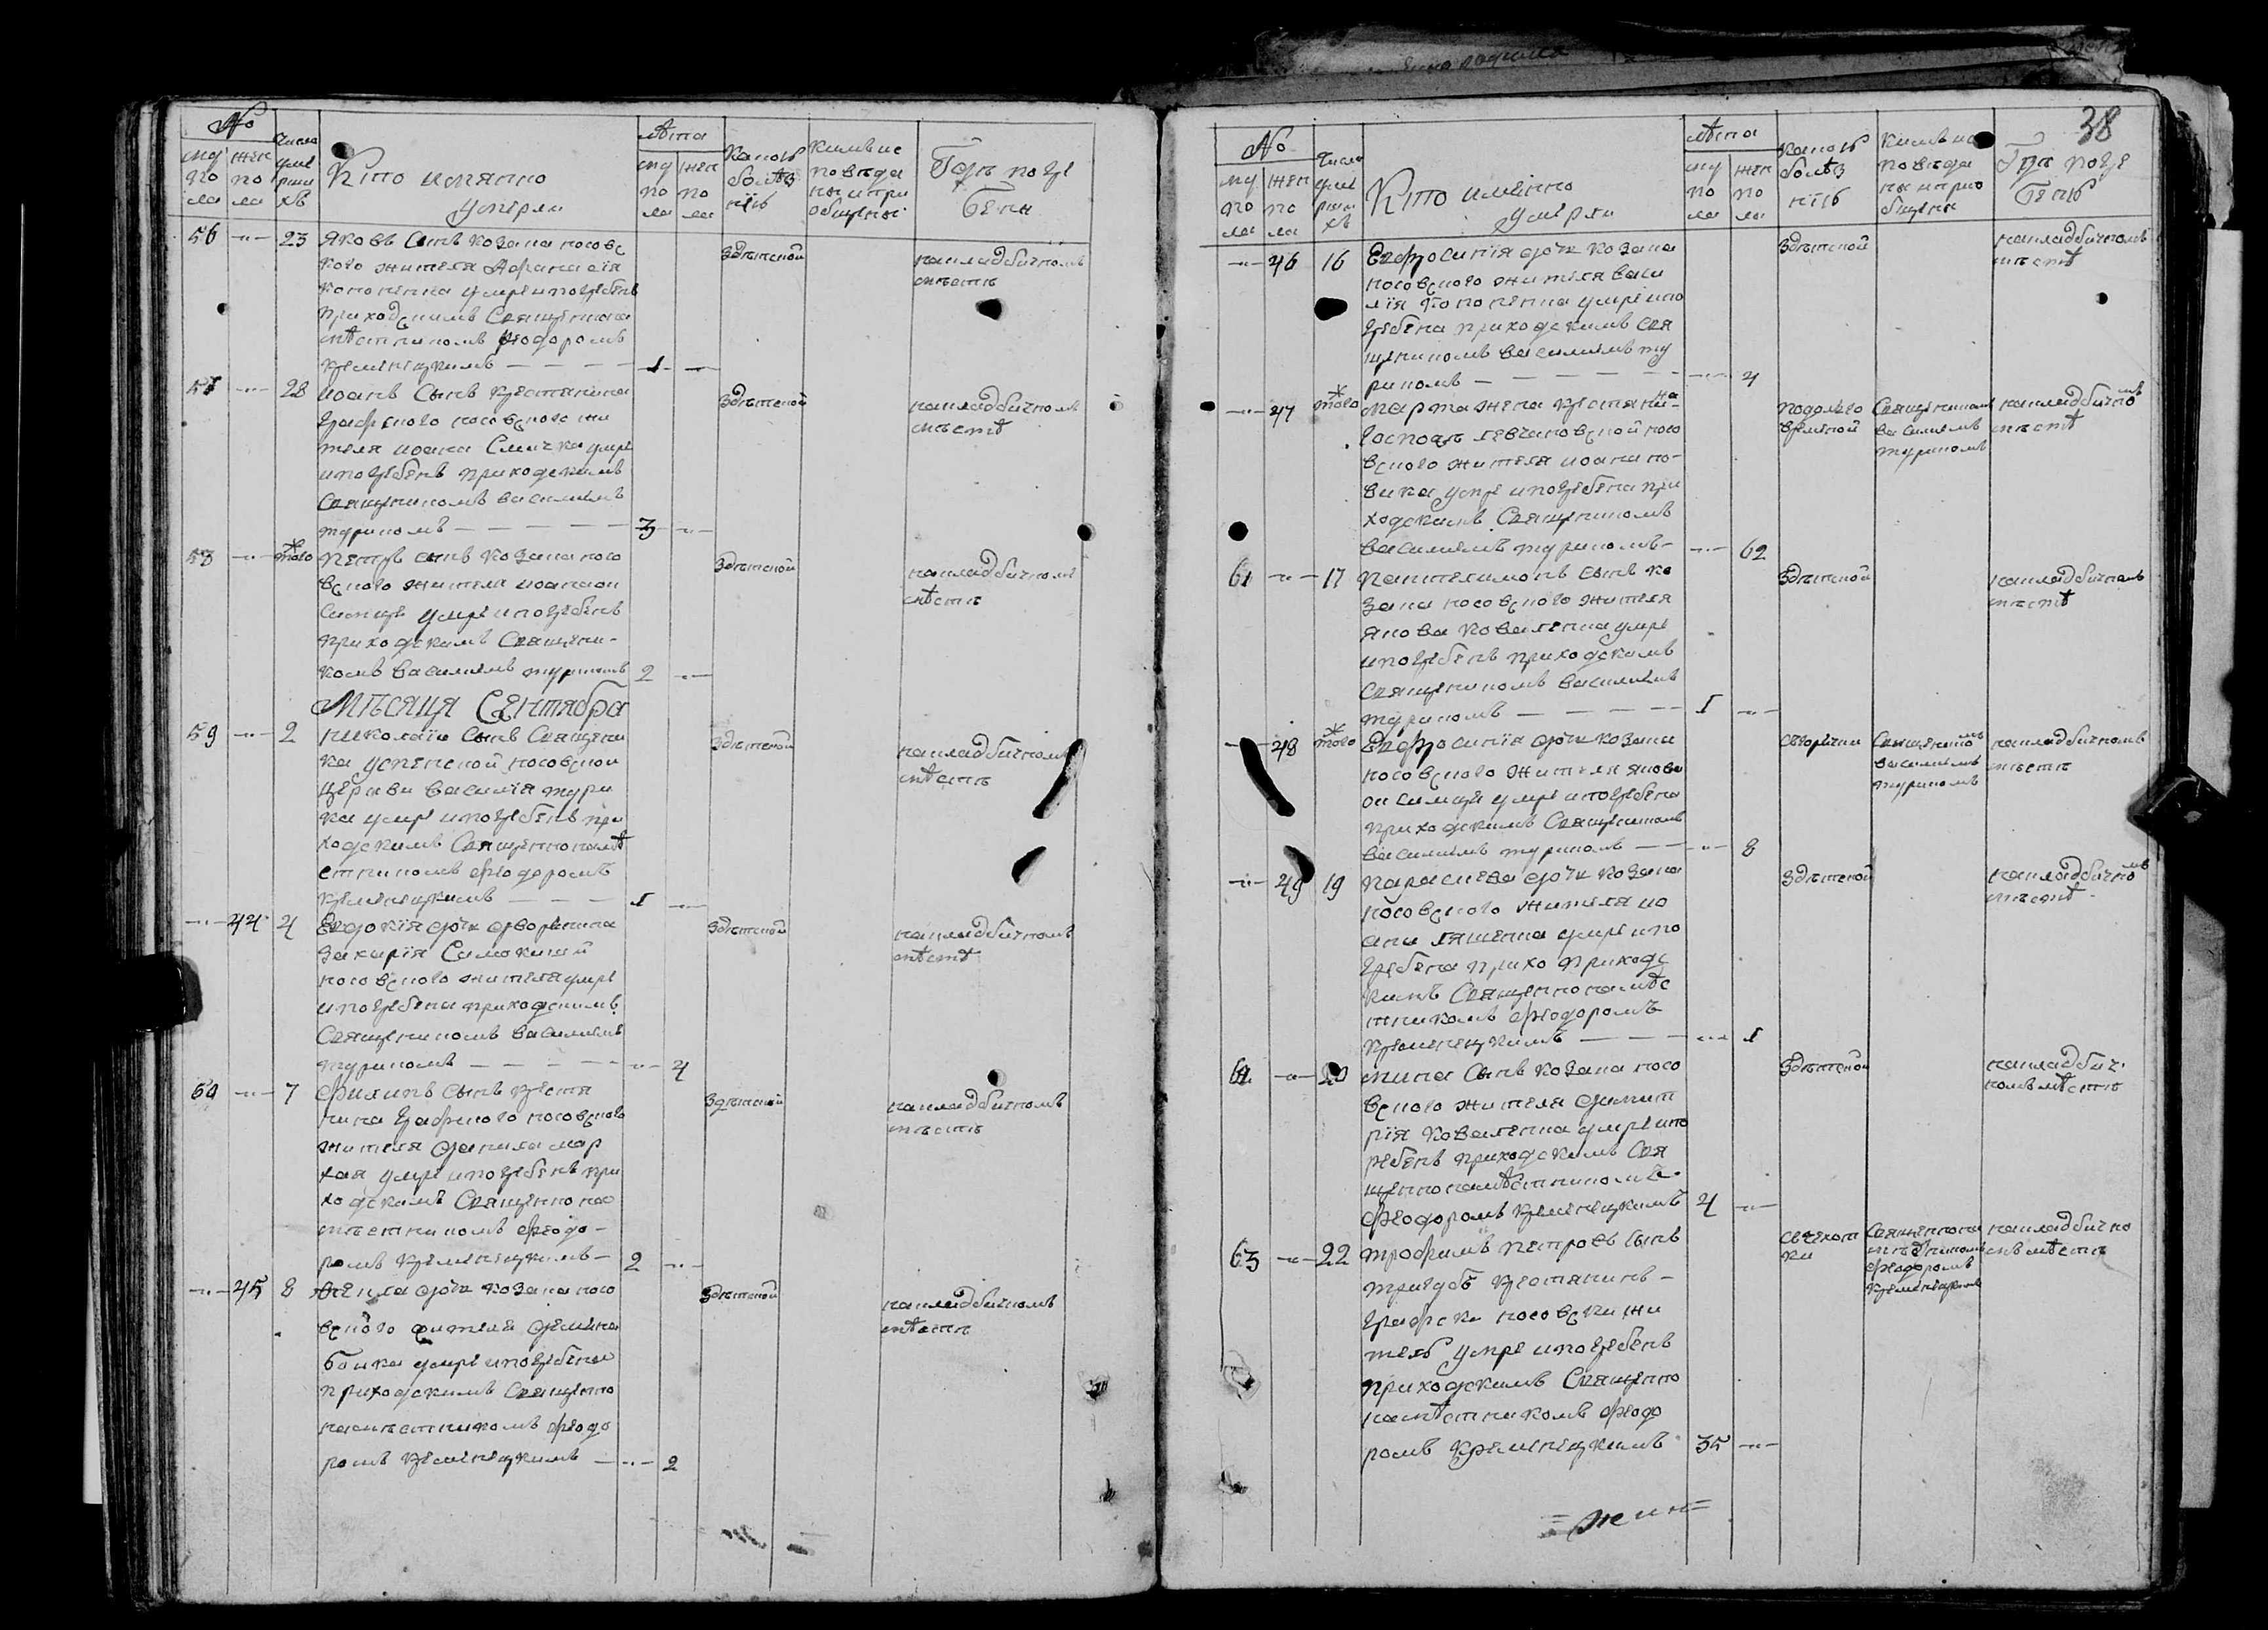 №
Числа умершихъ
Кто имянно умерли
Лѣта
Какою болѣзнію
Кимъ исповѣданы и приобщены
Гдѣ погребены
му же
пола пола
56 -"- 23 Яковъ Сынъ козака носовс
кого жителя Афанасія
Кононенка умре и погребенъ
приходскимъ Священнона
мѣстникомъ Феодоромъ
Кременецкимъ — — — — 1 -"-
здѣтской
на кладбичномъ
мѣстѣ
57 -"- 28 Иоанъ Сынъ крестянина
графского носовского жи
теля Иоана Смычка умре
и погребенъ приходскимъ
Священикомъ Василиемъ
Турикомъ — — — — — 3 -"-
здѣтской
на кладбичномъ
мѣстѣ
58 -"- того Петръ сынъ козака носо
вского жителя Иоана
умре и погребенъ
приходскимъ Священи-
комъ Василиемъ Турикомъ 2 -"-
здѣтской
на кладбичномъ
мѣстѣ
Мѣсяця Сентября
59 -"- 2 Николаи Сынъ Священи
ка успенской носовскои
церкви Василія Тури
ка умре и погребенъ при
ходскимъ Священнонамѣ
стникомъ Феодоромъ
Кременецкимъ — — — 1 -"-
здѣтской
на кладбичномъ
мѣстѣ
-"- 44 4 Евдокія дочь дворенина
Захарія
носовского жителя умре
и погребена приходскимъ
Священикомъ Василиемъ
Турикомъ — — — — -"- 4
здѣтской
на кладбичномъ
мѣстѣ
60 -"- 7 Филипъ Сынъ крестя
нина графского носовского
жителя Данила Мар
хая умре и погребенъ при
ходскимъ Священнона
мѣстникомъ Феодо-
ромъ Кременецкимъ — 2 -"-
здѣтской
на кладбичномъ
мѣстѣ
-"- 45 8 Фекла дочь козака носо
вского жителя Демяна
умре и погребена
приходскимъ Священно
намѣстникомъ Феодо
ромъ Кременецкимъ — -"- 2
здѣтской
на кладбичномъ
мѣстѣ
38
№
Число умершихъ
Кто имянно умерли
Лѣта
Какою болѣзнію
Кимъ исповѣданы и приобщены
Гдѣ погребены
му жен
пола пола
-"- 46 16 Евфросинія дочь козака
носовского жителя Васи
лія Кононенка умре и по
гребена приходскимъ Свя
щеникомъ Василиемъ Ту
рикомъ — — — — — -"- 4
здѣтской
на кладбичномъ
мѣстѣ
-"- 47 того Марта жена крестянина
Госпожѣ носо
вского жителя Иоана Но-
вика умре и погребена при
ходскимъ Священикомъ
Василиемъ Турикомъ — -"- 62
Священикомъ
Василиемъ
Турикомъ
на кладбичномъ
мѣстѣ
61 -"- 17 Пантелимонъ Сынъ ко
зака носовского жителя
Якова Коваленка умре
и погребенъ приходскимъ
Священикомъ Василиемъ
Турикомъ — — — — — 1 -"-
здѣтской
на кладбичномъ
мѣстѣ
-"- 48 того Евфросинія дочь козака
носовского жителя Якова
умре и погребена
приходскимъ Священикомъ
Василиемъ Турикомъ — — -"- 8
Священикомъ
Василиемъ
Турикомъ
на кладбичномъ
мѣстѣ
-"- 49 19 Параскева дочь козака
носовского жителя Ио
ана Ляшенка умре и по
гребена прихо приходс
кимъ Священнонамѣс
тникомъ Феодоромъ
Кременецкимъ — — — -"- 1
здѣтской
на кладбичномъ
мѣстѣ
62 -"- 20 Мина Сынъ козака носо
вского жителя Димит
рія Коваленка умре и по
гребенъ приходскимъ Свя
щеннонамѣстникомъ
Феодоромъ Кременецкимъ 4 -"-
здѣтской
на кладбич
номъ мѣстѣ
63 -"- 22 Трофимъ Петровъ Сынъ
крестянинъ —
графски носовски жи
тель умре и погребенъ
приходскимъ Священно
намѣстникомъ Феодо
ромъ Кременецкимъ 35 -"-
сухот
ки
Священнона
мѣстникомъ
Феодоромъ
Кременецкимъ
на кладбично
мъ мѣстѣ